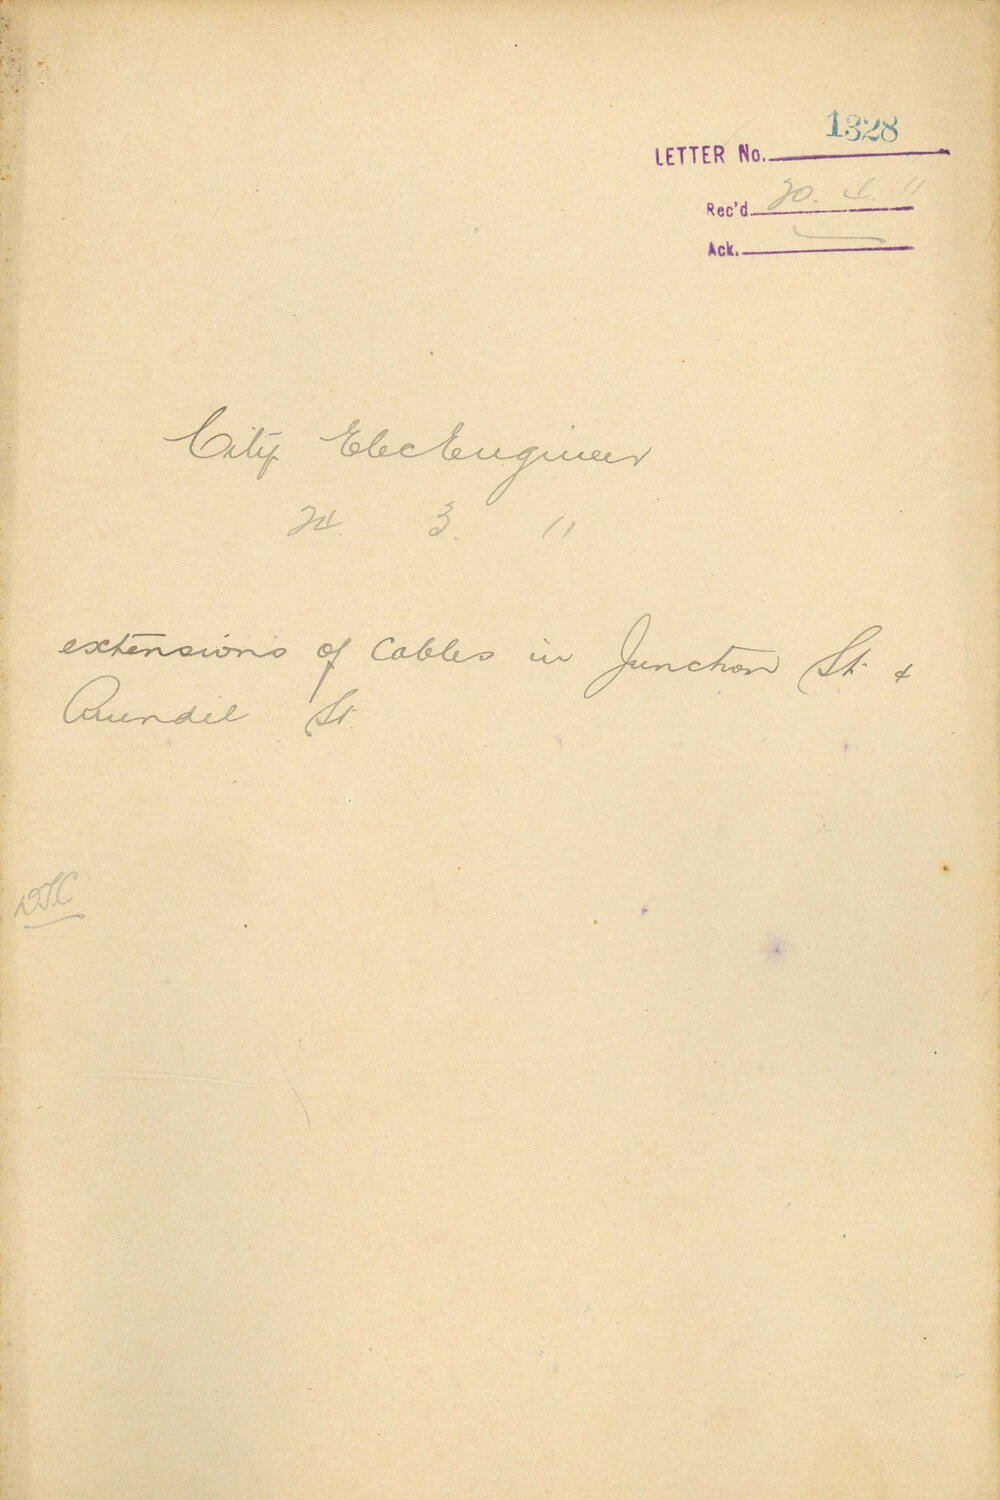 1328
LETTER No.
Rec'd 20. 4. 11
Ack.
City Elec Engineer
24. 3. 11
extensions of Cables in Junction St &
Arundel St.